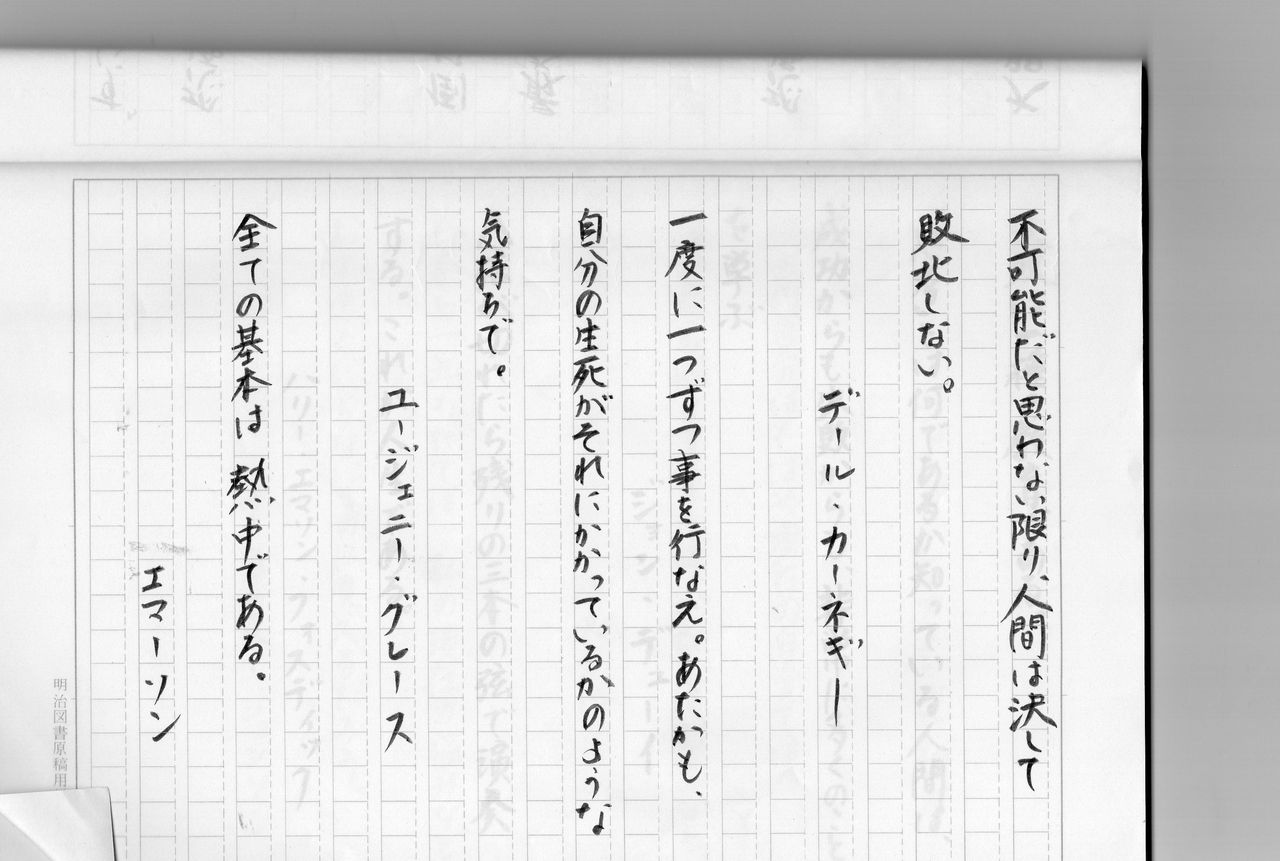 不可能だと思わない限り、人間は決して
敗北しない。
デール・カーネギー
一度に一つずつ事を行なえ。あたかも、
自分の生死がそれにかかっているかのような
気持ちで。
ユージェニー・グレース
全ての基本は熱中である。
エマーソン
明治図書原稿用